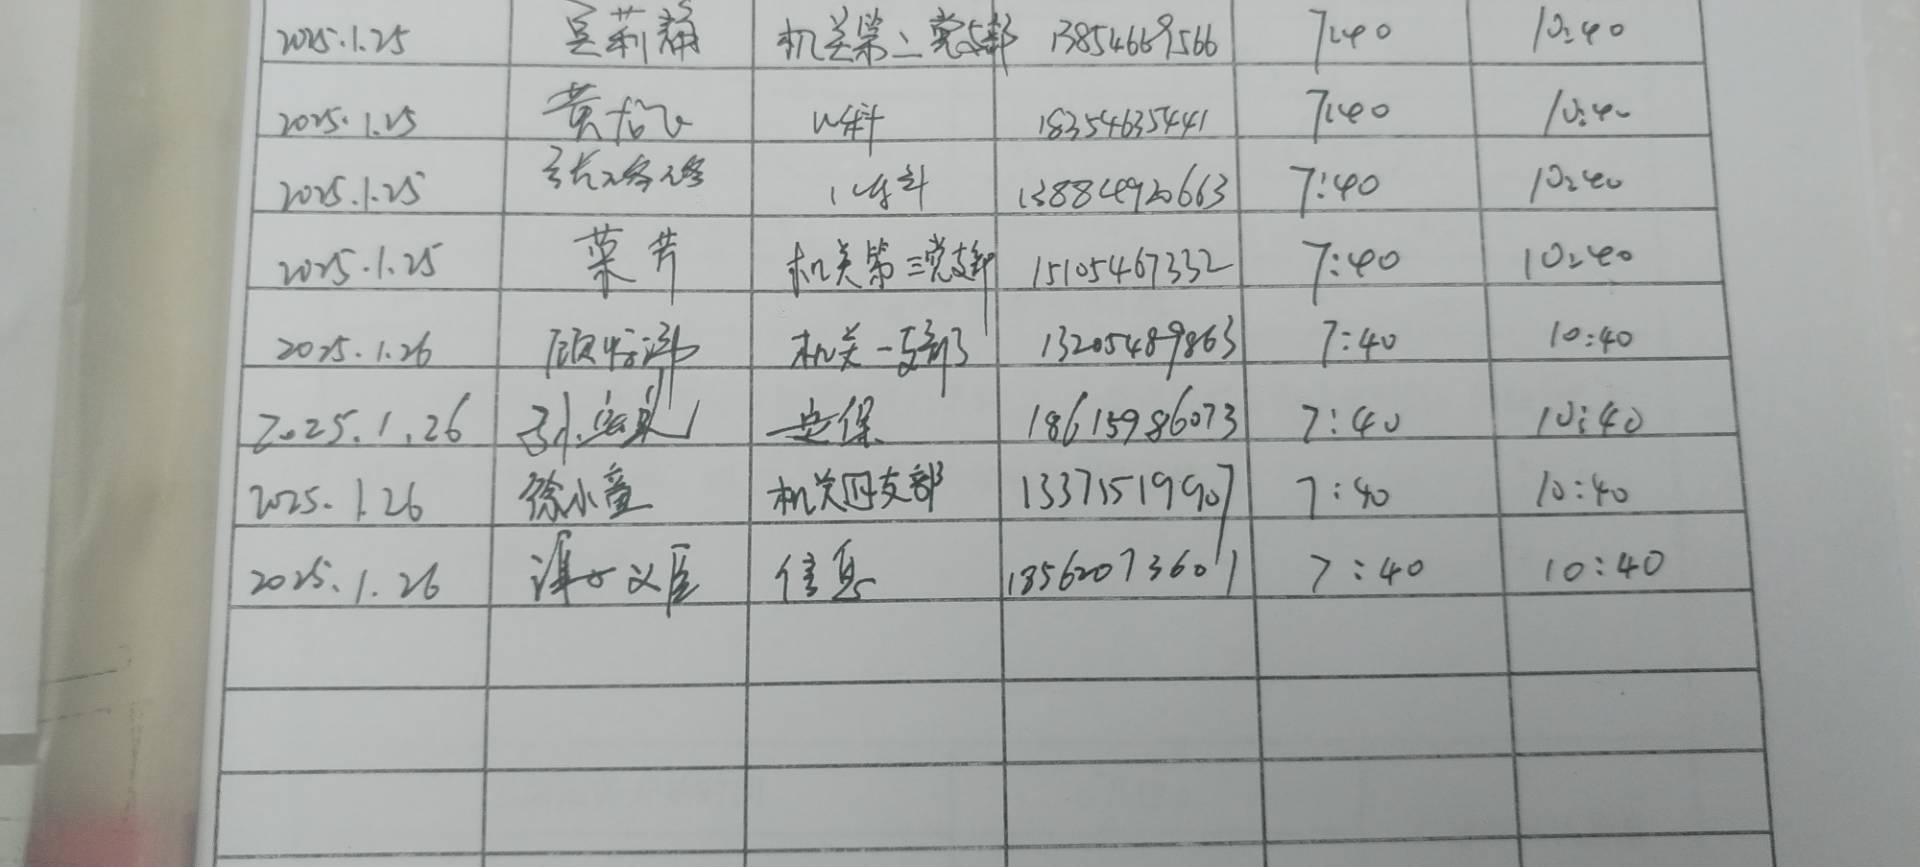 2025.1.25 吴莉静 机关第二党支部 13854669566 7:40 10:40
2025.1.25 黄 小儿科 18354635441 7:40 10:40
2025.1.25 张 儿科 13884920663 7:40 10:40
2025.1.25 菜芳 机关第三党支部 15105467332 7:40 10:40
2025.1.26 顾 机关一支部 13205489863 7:40 10:40
2025.1.26 安保 18615986073 7:40 10:40
2025.1.26 徐小童 机关四支部 13371519907 7:40 10:40
2025.1.26 谭 信息 18562073607 7:40 10:40